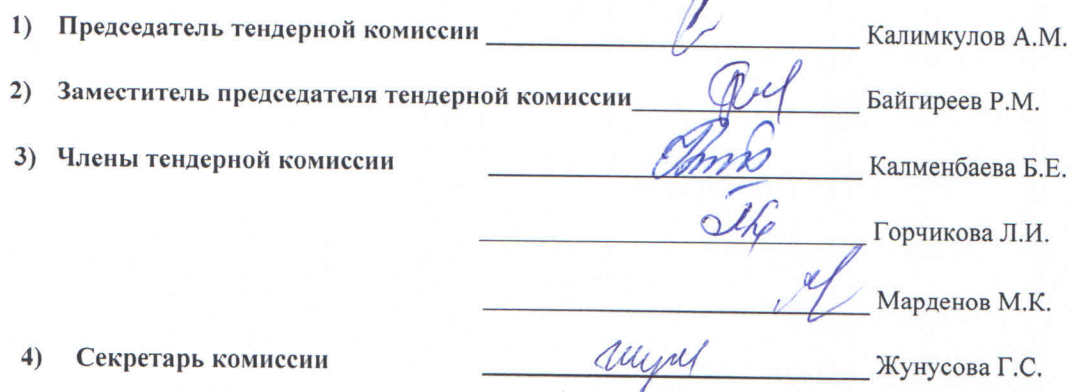 1) Председатель тендерной комиссии Калимкулов А.М.
2) Заместитель председателя тендерной комиссии Байгиреев Р.М.
3) Члены тендерной комиссии Калменбаева Б.Е.
Горчикова Л.И.
Марденов М.К.
4) Секретарь комиссии Жунусова Г.С.